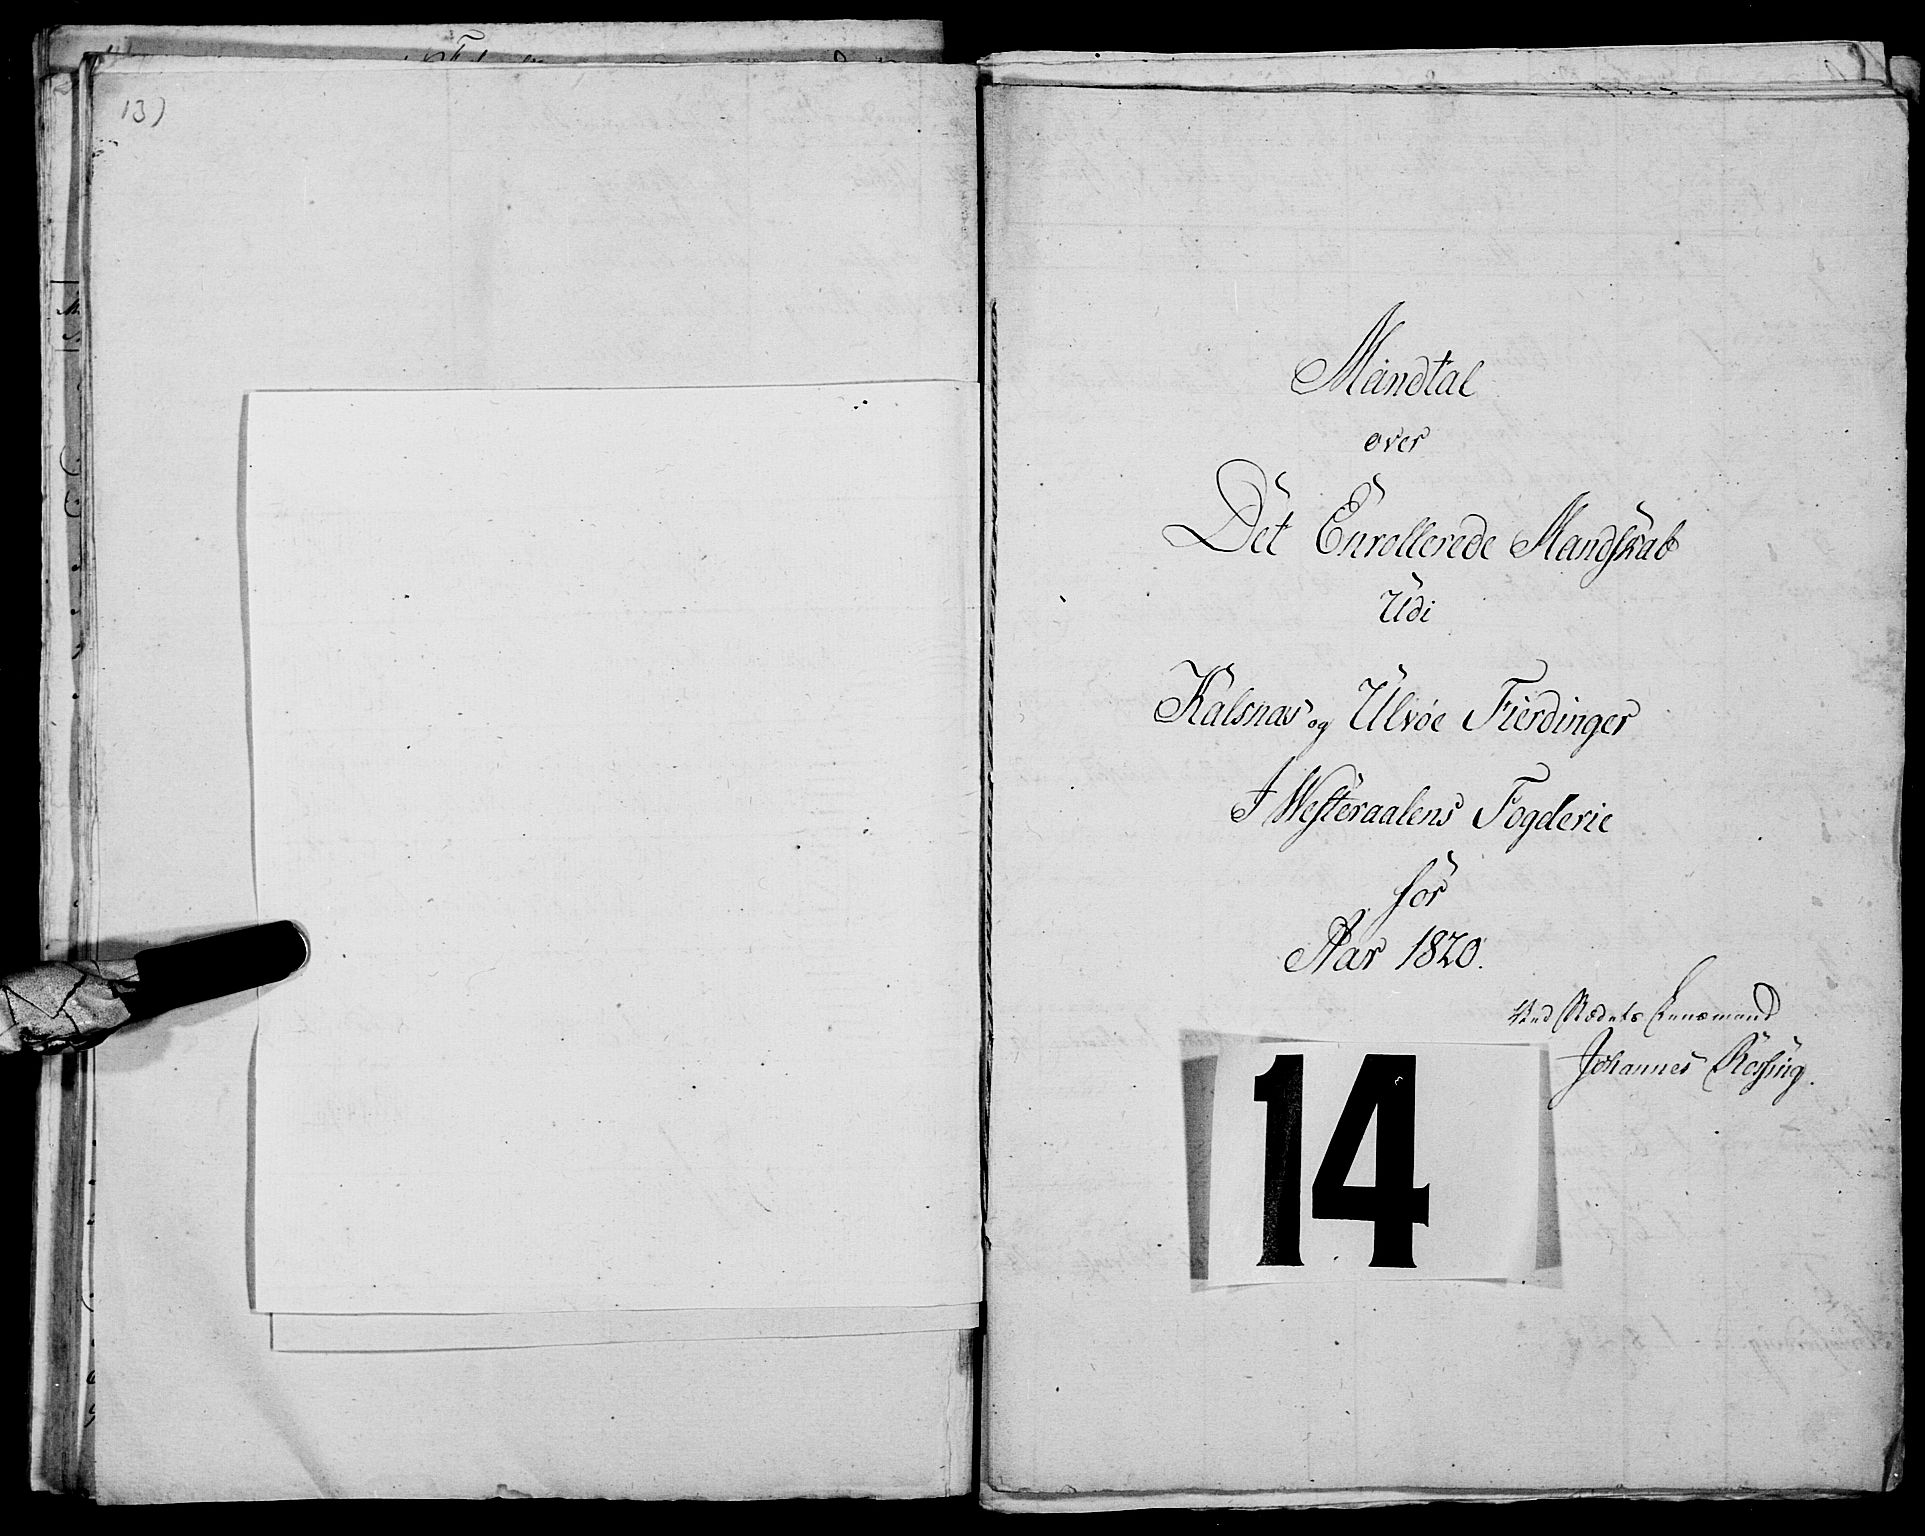 13)
Mandtal
over
Det Enrollerede Mandskab
Udi
Kalsnas og Ulvøe Fierdinger
I Westeraalens Fogderie
for
Aar 1820.
Ved Stædets Lensmand
Johannes Røsting.
14